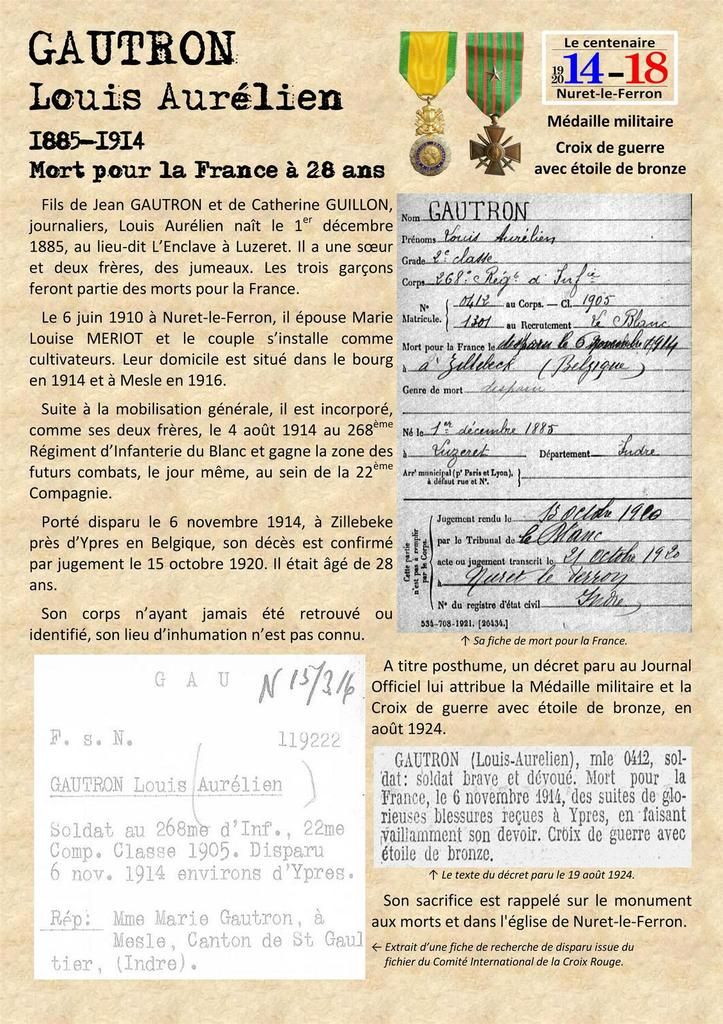 GAUTRON
Louis Aurélien
1885–1914
Mort pour la France à 28 ans
Le centenaire
19 20 14–18
Nuret-le-Ferron
Médaille militaire
Croix de guerre
avec étoile de bronze
Fils de Jean GAUTRON et de Catherine GUILLON,
journaliers, Louis Aurélien naît le 1er décembre
1885, au lieu-dit L'Enclave à Luzeret. Il a une sœur
et deux frères, des jumeaux. Les trois garçons
feront partie des morts pour la France.
Le 6 juin 1910 à Nuret-le-Ferron, il épouse Marie
Louise MERIOT et le couple s'installe comme
cultivateurs. Leur domicile est situé dans le bourg
en 1914 et à Mesle en 1916.
Suite à la mobilisation générale, il est incorporé,
comme ses deux frères, le 4 août 1914 au 268ème
Régiment d'Infanterie du Blanc et gagne la zone des
futurs combats, le jour même, au sein de la 22ème
Compagnie.
Porté disparu le 6 novembre 1914, à Zillebeke
près d'Ypres en Belgique, son décès est confirmé
par jugement le 15 octobre 1920. Il était âgé de 28
ans.
Son corps n'ayant jamais été retrouvé ou
identifié, son lieu d'inhumation n'est pas connu.
Nom GAUTRON
Prénoms Louis Aurélien
Grade 2e classe
Corps 268e Régt d'Infie
N° Matricule. 0412 au Corps. — Cl. 1905
1301 au Recrutement Le Blanc
Mort pour la France le disparu le 6 novembre 1914
à à Zillebeck (Belgique)
Genre de mort disparu
Né le 1er décembre 1885
à Luzeret Département Indre
Arrt municipal (pr Paris et Lyon),
à défaut rue et N°.
Cette partie n'est pas à remplir par le Corps.
Jugement rendu le 15 octobre 1920
par le Tribunal de Le Blanc
acte ou jugement transcrit le 21 octobre 1920
à Nuret le Ferron
N° du registre d'état civil Indre
534-708-1921. [26434.]
↑ Sa fiche de mort pour la France.
G A U N 15/316
F. s. N. 119222
GAUTRON Louis Aurélien
Soldat au 268me d'Inf., 22me
Comp. Classe 1905. Disparu
6 nov. 1914 environs d'Ypres.
Rép: Mme Marie Gautron, à
Mesle, Canton de St Gaul
tier, (Indre).
A titre posthume, un décret paru au Journal
Officiel lui attribue la Médaille militaire et la
Croix de guerre avec étoile de bronze, en
août 1924.
GAUTRON (Louis-Aurelien), mle 0412, sol-
dat: soldat brave et dévoué. Mort pour la
France, le 6 novembre 1914, des suites de glo-
rieuses blessures reçues à Ypres, en faisant
vaillamment son devoir. Croix de guerre avec
étoile de bronze.
↑ Le texte du décret paru le 19 août 1924.
Son sacrifice est rappelé sur le monument
aux morts et dans l'église de Nuret-le-Ferron.
← Extrait d'une fiche de recherche de disparu issue du
fichier du Comité International de la Croix Rouge.